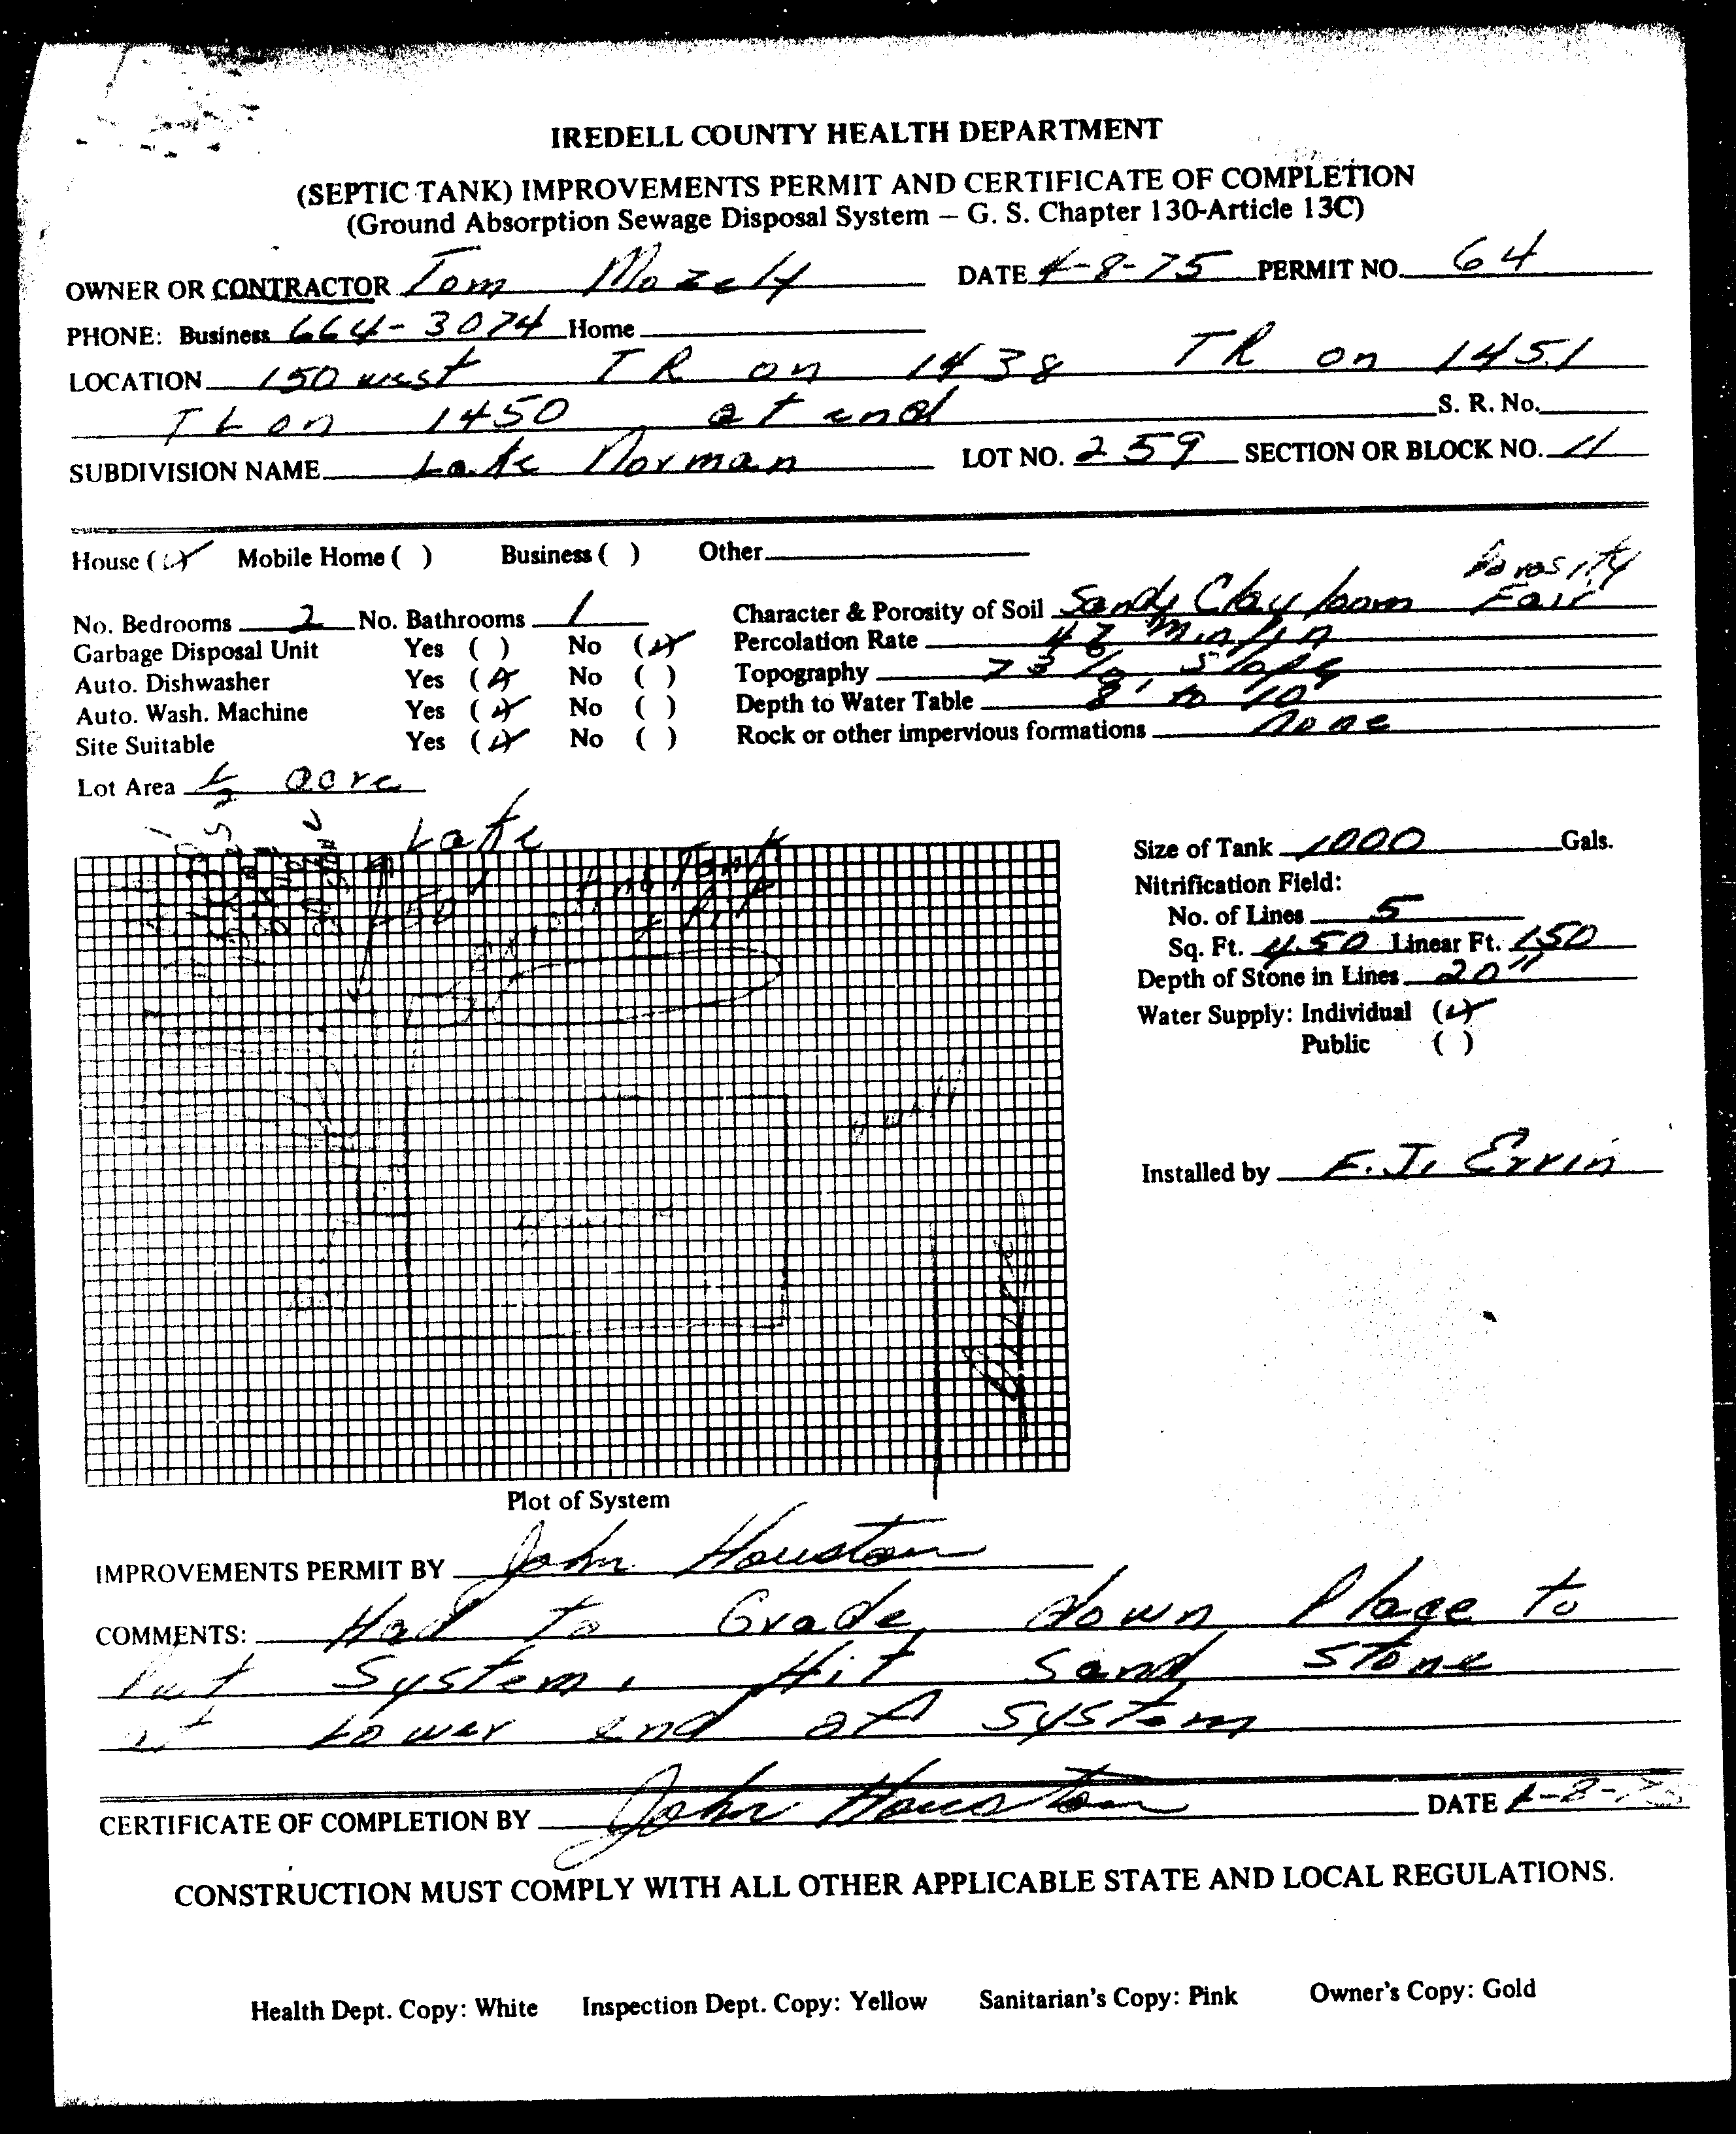 IREDELL COUNTY HEALTH DEPARTMENT
(SEPTIC TANK) IMPROVEMENTS PERMIT AND CERTIFICATE OF COMPLETION
(Ground Absorption Sewage Disposal System – G. S. Chapter 130-Article 13C)
OWNER OR CONTRACTOR Tom Mozely DATE 4-8-75 PERMIT NO. 64
PHONE: Business 664-3074 Home
LOCATION 150 west TR on 1438 TR on 1451
TL on 1450 at end S. R. No.
SUBDIVISION NAME Lake Norman LOT NO. 259 SECTION OR BLOCK NO. 11
House ( ) Mobile Home ( ) Business ( ) Other
Porosity
No. Bedrooms 2 No. Bathrooms 1 Character & Porosity of Soil Sandy Clay loam Fair
Garbage Disposal Unit Yes ( ) No ( ) Percolation Rate Min/in
Auto. Dishwasher Yes ( ) No ( ) Topography Slope
Auto. Wash. Machine Yes ( ) No ( ) Depth to Water Table 8' to 10'
Site Suitable Yes ( ) No ( ) Rock or other impervious formations none
Lot Area 1/2 acre
Lake
Tank
50'
Size of Tank 1000 Gals.
Nitrification Field:
No. of Lines 5
Sq. Ft. 450 Linear Ft. 150
Depth of Stone in Lines 20"
Water Supply: Individual ( )
Public ( )
Installed by F. J. Ervin
Plot of System
IMPROVEMENTS PERMIT BY John Houston
COMMENTS: Had to Grade down Place to
Put System. Hit Sand Stone
at Lower end of System
CERTIFICATE OF COMPLETION BY John Houston DATE 4-8-75
CONSTRUCTION MUST COMPLY WITH ALL OTHER APPLICABLE STATE AND LOCAL REGULATIONS.
Health Dept. Copy: White Inspection Dept. Copy: Yellow Sanitarian's Copy: Pink Owner's Copy: Gold